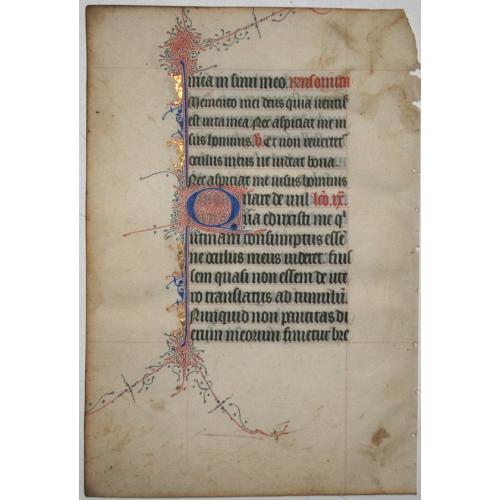 mea in sinu meo. Responsorium
Memento mei deus quia uentus
est uita mea. Nec aspiciat me ui
sus hominis. V. Et non reuertet
oculus meus ut uideat bona.
Nec aspiciat me uisus hominis
Quare de uul lco. ix.
ua eduxisti me qui
utinam consumptus esse
ne oculus meus uideret. fuis
sem quasi non essem de ute
ro translatus ad tumulum.
Nunquid non paucitas di
erum meorum finietur bre